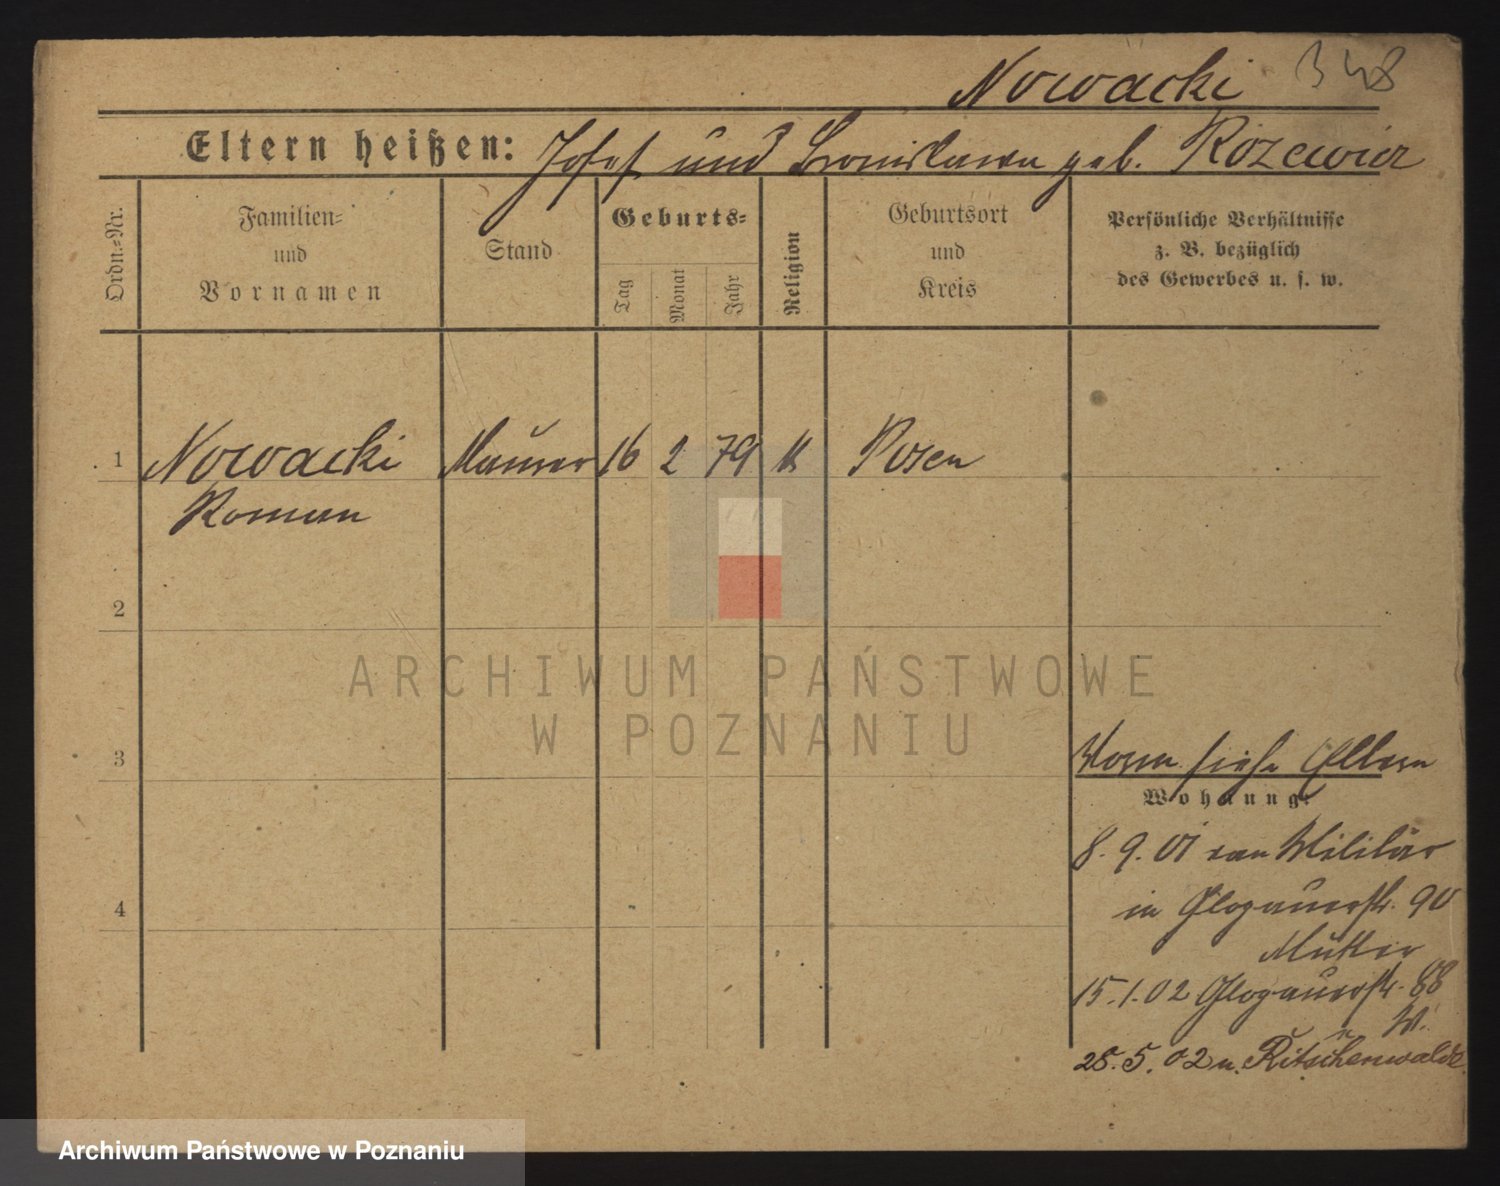 Nowacki 348
Eltern heißen: Josef und Bronislawa geb. Rozewicz
Ordn.=Nr.
Familien=
und
Vornamen
Stand
Geburts=
Tag
Monat
Jahr
Religion
Geburtsort
und
Kreis
Persönliche Verhältnisse
z. B. bezüglich
des Gewerbes u. s. w.
1 Nowacki Maurer 16 2 79 K Posen
Roman
2
ARCHIWUM PAŃSTWOWE
W POZNANIU
3
Vorm siehe Eltern
Wohnung:
8. 9. 01 vom Militär
in Glogauerstr. 90
4
Mutter
15. 1. 02 Glogauerstr. 88
W.
28. 5. 02 n. Ritschenwalde
Archiwum Państwowe w Poznaniu